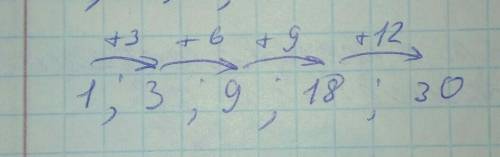 +3 +6 +9 +12
1; 3; 9; 18; 30